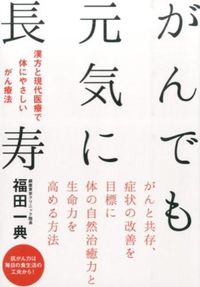 がんでも
元気に
長寿
漢方と現代医療で
体にやさしい
がん療法
がんと共存、
症状の改善を
目標に
体の自然治癒力と
生命力を
高める方法
銀座東京クリニック院長
福田一典
抗がん力は
毎日の食生活の
工夫から!